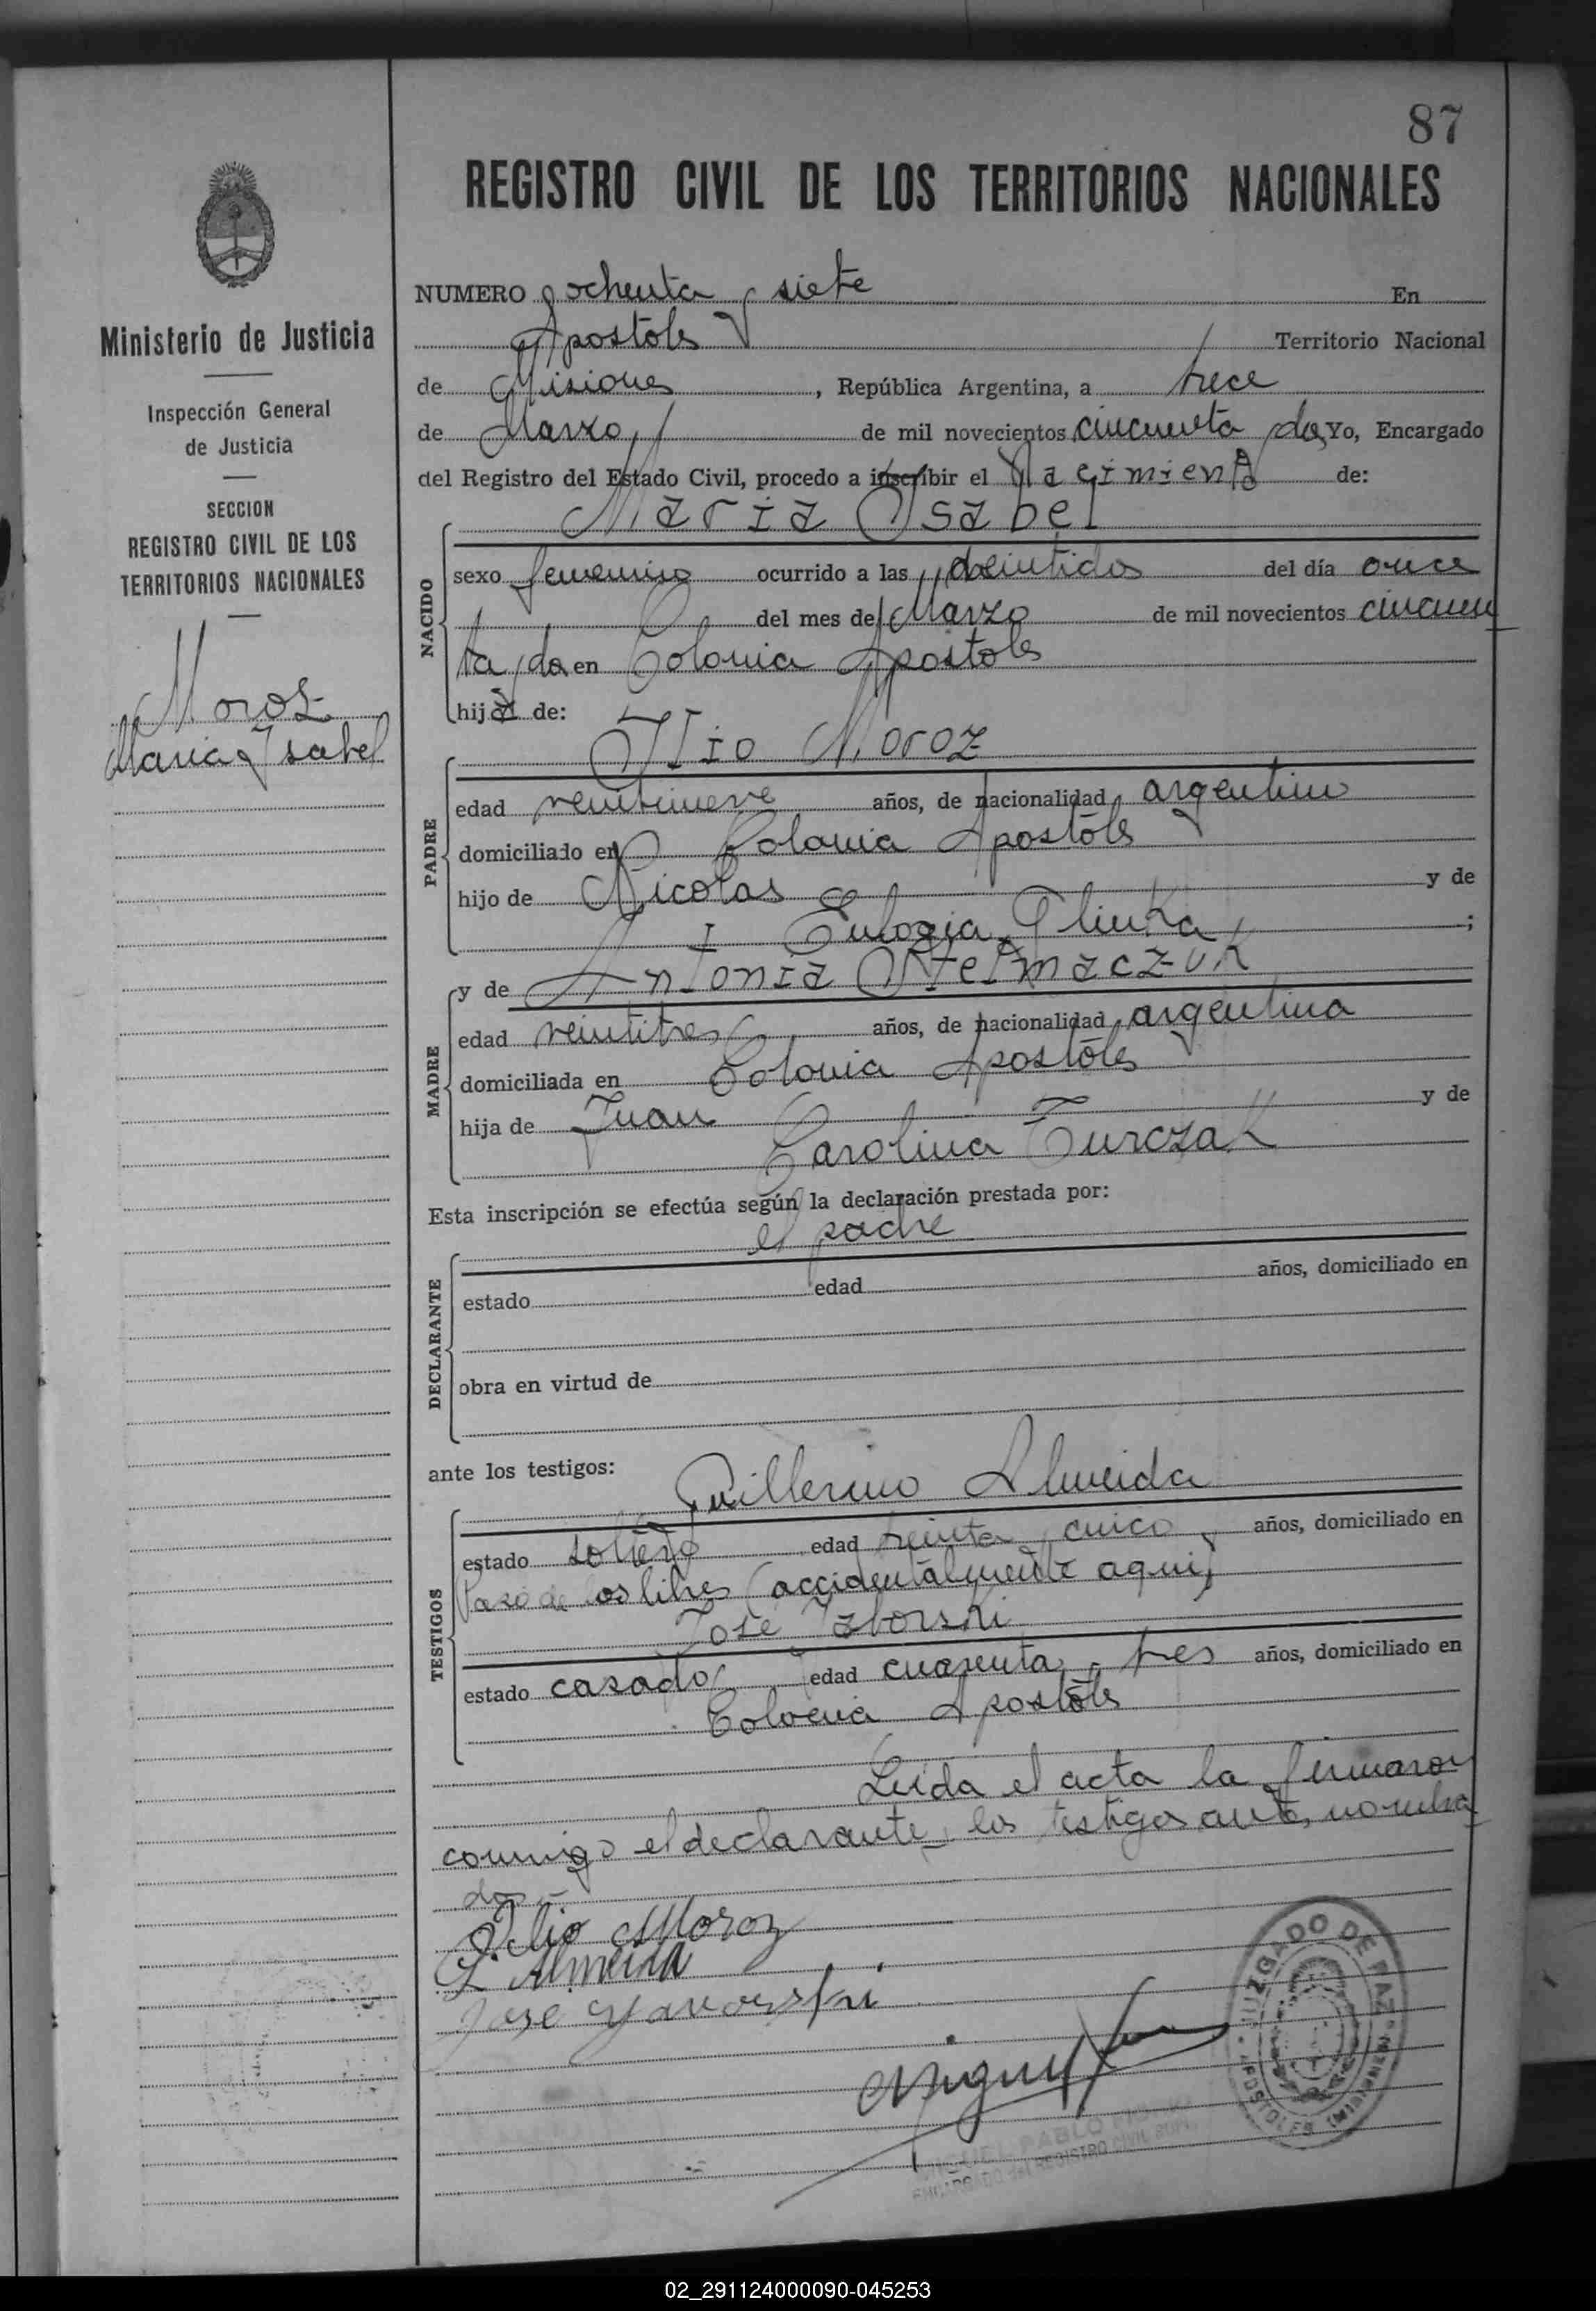 87
REGISTRO CIVIL DE LOS TERRITORIOS NACIONALES
Ministerio de Justicia
Inspección General
de Justicia
SECCION
REGISTRO CIVIL DE LOS
TERRITORIOS NACIONALES
Moroz
Maria Isabel
NUMERO ochenta y siete En
Apostoles Territorio Nacional
de Misiones, República Argentina, a trece
de Marzo de mil novecientos cincuenta y dos, Yo, Encargado
del Registro del Estado Civil, procedo a inscribir el Nacimiento de:
Maria Isabel
NACIDO
sexo femenino ocurrido a las veintidos del día once
del mes de Marzo de mil novecientos cincuen
ta y dos en Colonia Apostoles
hija de:
PADRE
Ilio Moroz
edad veintinueve años, de nacionalidad argentino
domiciliado en Colonia Apostoles
hijo de Nicolas y de
Eulogia Glinka ;
MADRE
y de Antonia Stelmaczuk
edad veintitres años, de nacionalidad argentina
domiciliada en Colonia Apostoles
hija de Juan y de
Carolina Turczak
Esta inscripción se efectúa según la declaración prestada por:
el padre
DECLARANTE
estado edad años, domiciliado en
obra en virtud de
ante los testigos:
Guillermo Almeida
TESTIGOS
estado soltero edad treinta y cinco años, domiciliado en
Paso de los libres (accidentalmente aqui)
José
estado casado edad cuarenta y tres años, domiciliado en
Colonia Apostoles
Leída el acta la firmaron
conmigo el declarante y los testigos ante nombra
dos
Ilio Moroz
G. Almeida
Jose Yavorski
Miguel
JUZGADO DE PAZ
APOSTOLES (MISIONES)
MIGUEL PABLO
ENCARGADO del REGISTRO CIVIL
02_291124000090-045253